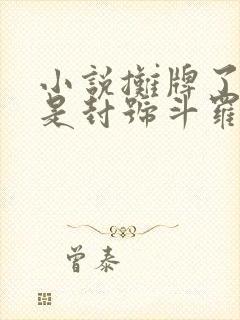 小說攤牌了
是封號斗羅
曾泰